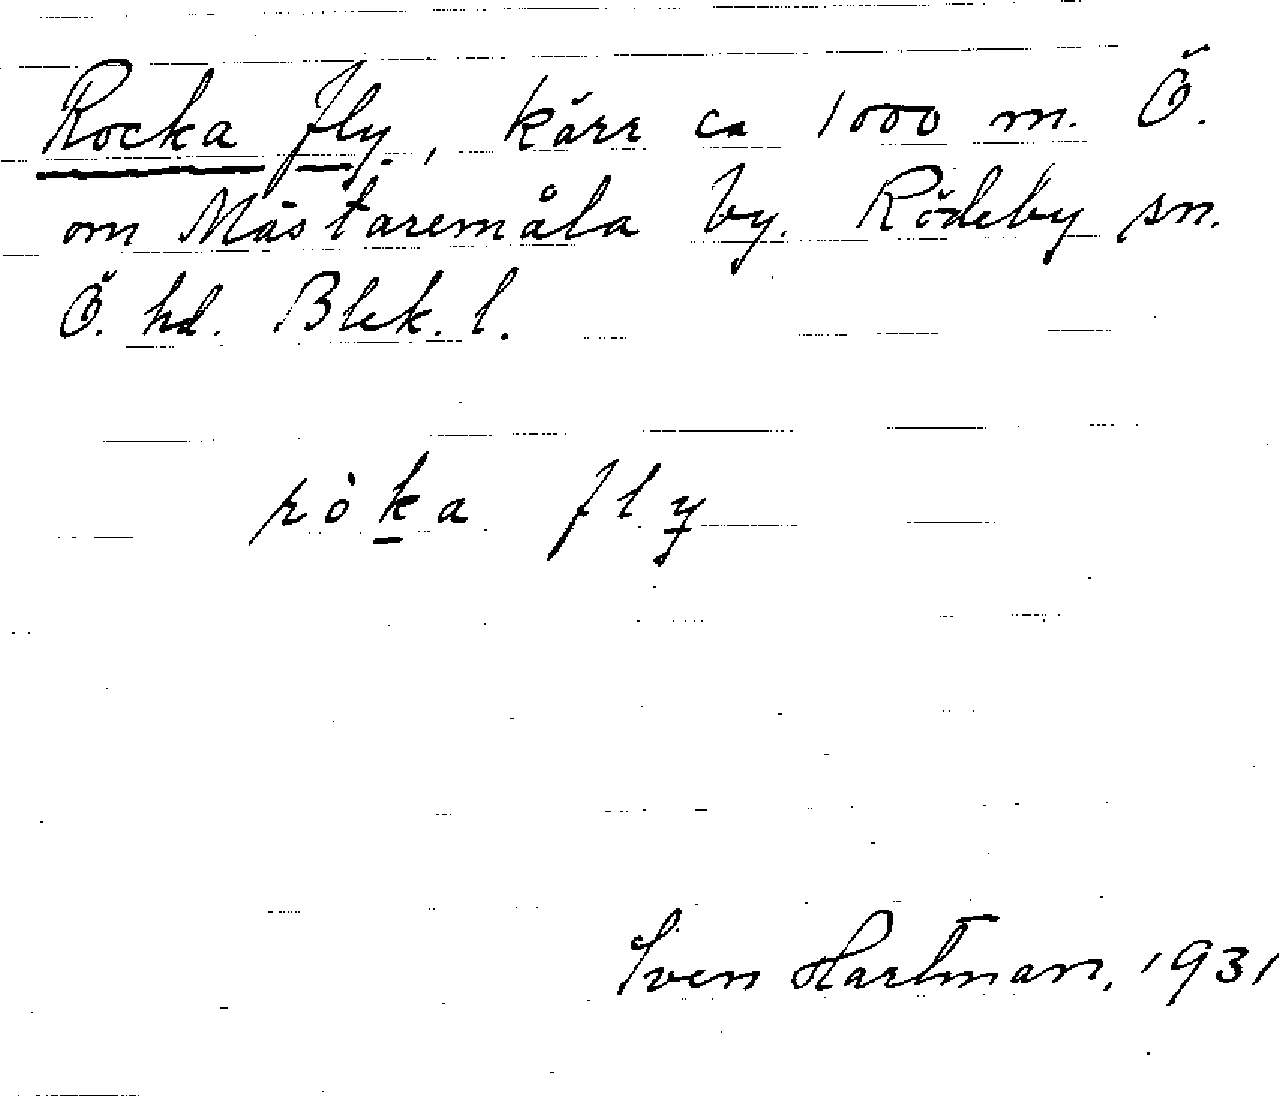 Rocka fly, kärr ca 1000 m. Ö.
om Mästaremåla by. Rödeby sn.
Ö. hd. Blek. l.
ròka fly
Sven Hartman, 1931